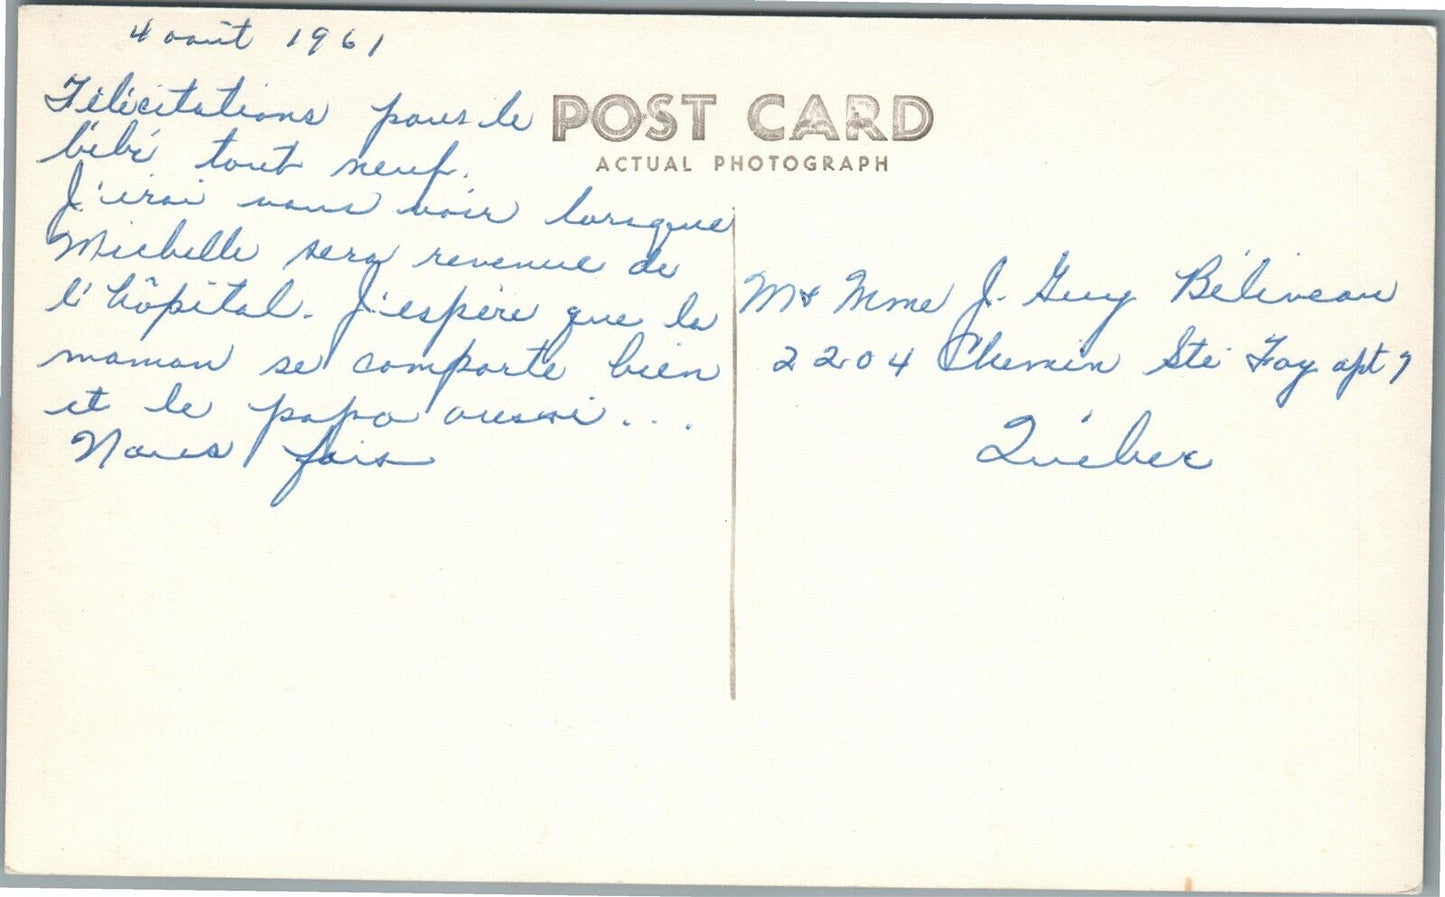 4 août 1961
Félicitations pour le
bébé tout neuf.
J'irai vous voir lorsque
Michelle sera revenue de
l'hôpital. J'espère que la
maman se comporte bien
et le papa aussi...
POST CARD
ACTUAL PHOTOGRAPH
M & Mme J. Guy Béliveau
2204 Chemin Ste Foy apt 7
Québec